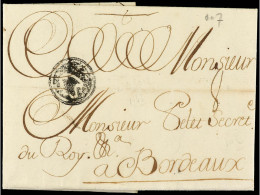 007
Monsieur
Monsieur Pelet Secret.
du Roy &a
a Bordeaux